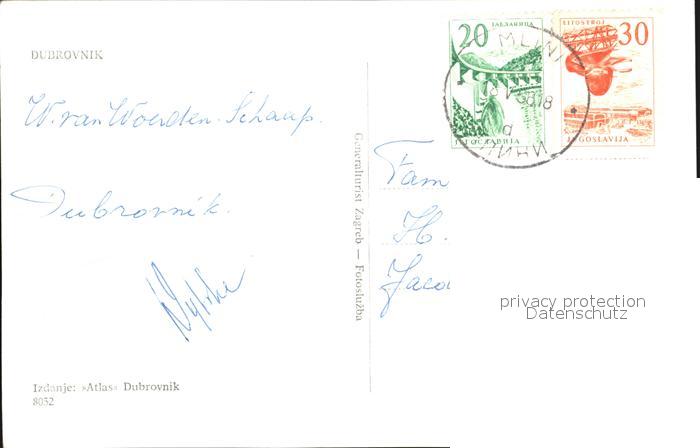 DUBROVNIK
W. van Woerden-Schaap.
Dubrovnik.
Izdanje: »Atlas« Dubrovnik
8052
Generalturist Zagreb — Fotoslužba
20 ЈАБЛАНИЦА
ЈУГОСЛАВИЈА
LITOSTROJ 30
JUGOSLAVIJA
MLINI
МЛИНИ
Fam
H.
Jaco
privacy protection
Datenschutz